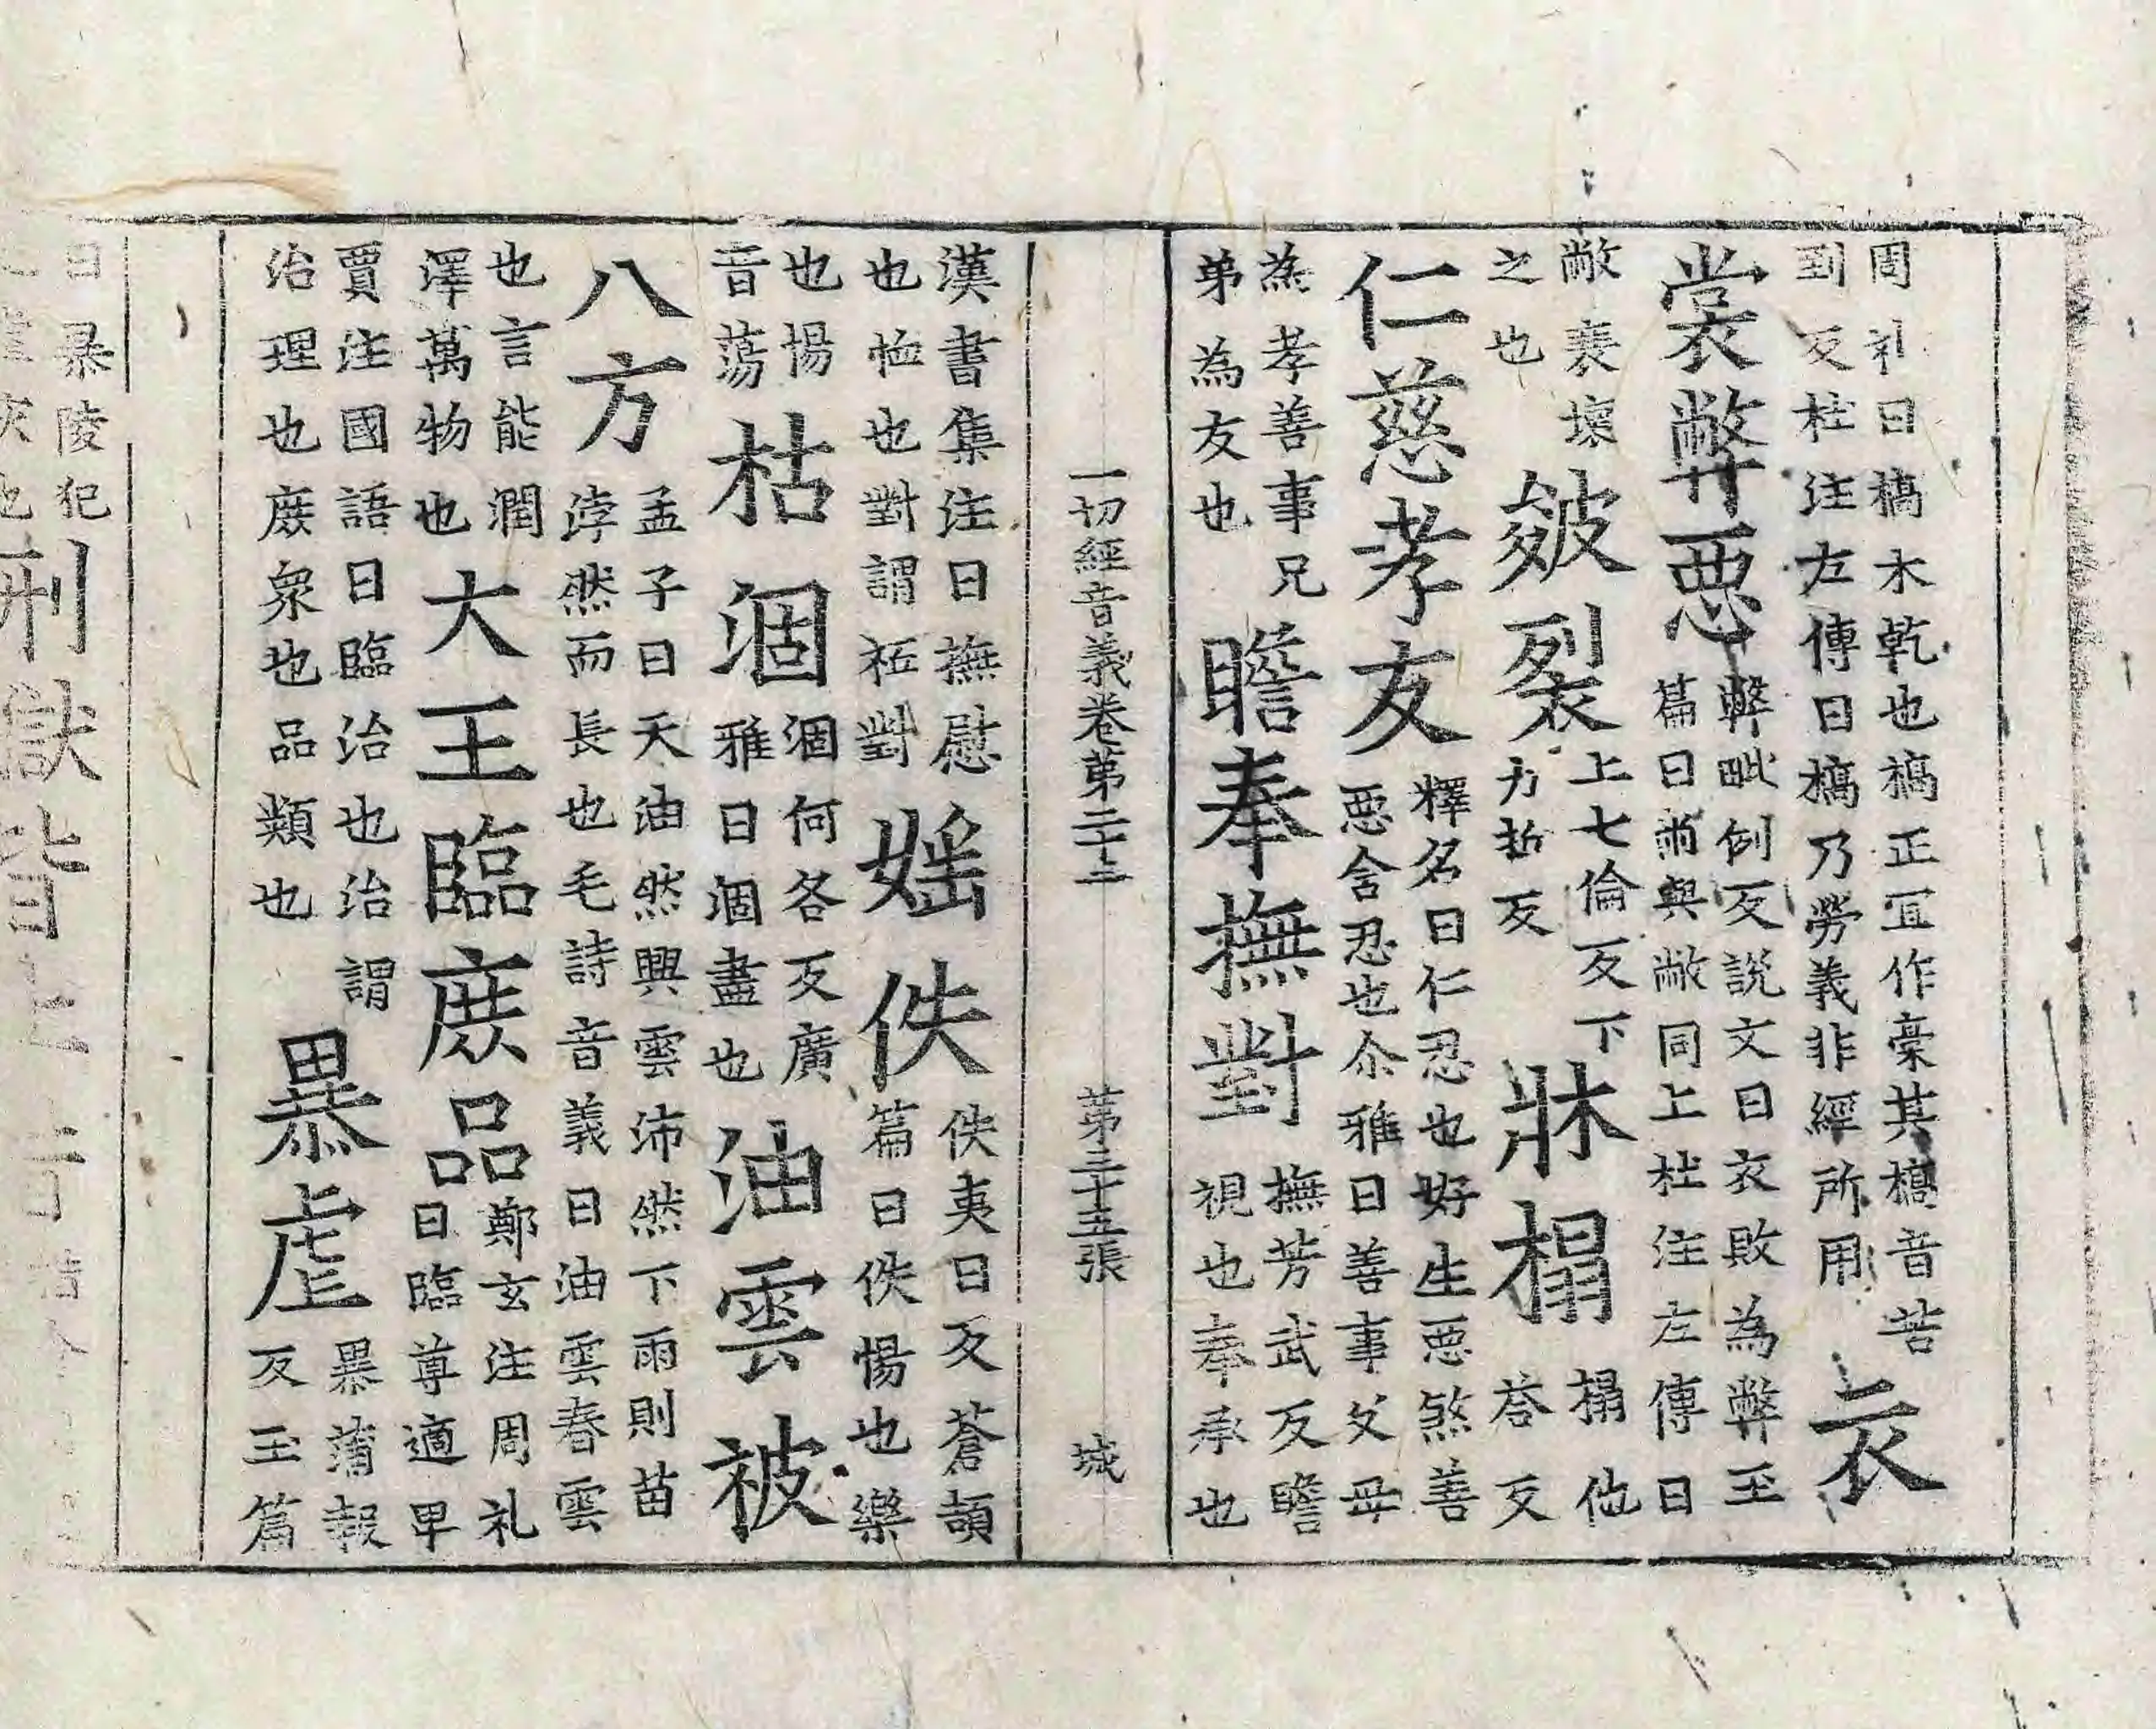 周礼曰槁木乾也槁正冝作槀其槁音苦
到反杜注左傳曰槁乃勞義非經所用
衣
裳弊惡
弊毗例反説文曰衣敗為弊玉
篇曰㡀與敝同上杜注左傳曰
敝衰壞
之也
皴裂
上七倫反下
力哲反
牀榻
榻他
荅反
仁慈孝友
釋名曰仁忍也好生惡煞善
惡含忍也尒雅曰善事父母
為孝善事兄
弟為友也
瞻奉撫對
撫芳武反瞻
視也奉承也
一切經音義卷第二十二 第三十五張 城
漢書集注曰撫慰
也恤也對謂祗對
媱佚
佚夷日反蒼頡
篇曰佚惕也樂
也惕
音蕩
枯涸
涸何各反廣
雅曰涸盡也
油雲被
八方
孟子曰天油然興雲沛然下雨則苗
浡然而長也毛詩音義曰油雲春雲
也言能潤
澤萬物也
大王臨庻品
鄭玄注周礼
曰臨尊適卑
賈注國語曰臨治也治謂
治理也庻衆也品類也
暴虐
暴蒲報
反玉篇
曰暴陵犯
灾也
刑獄皆